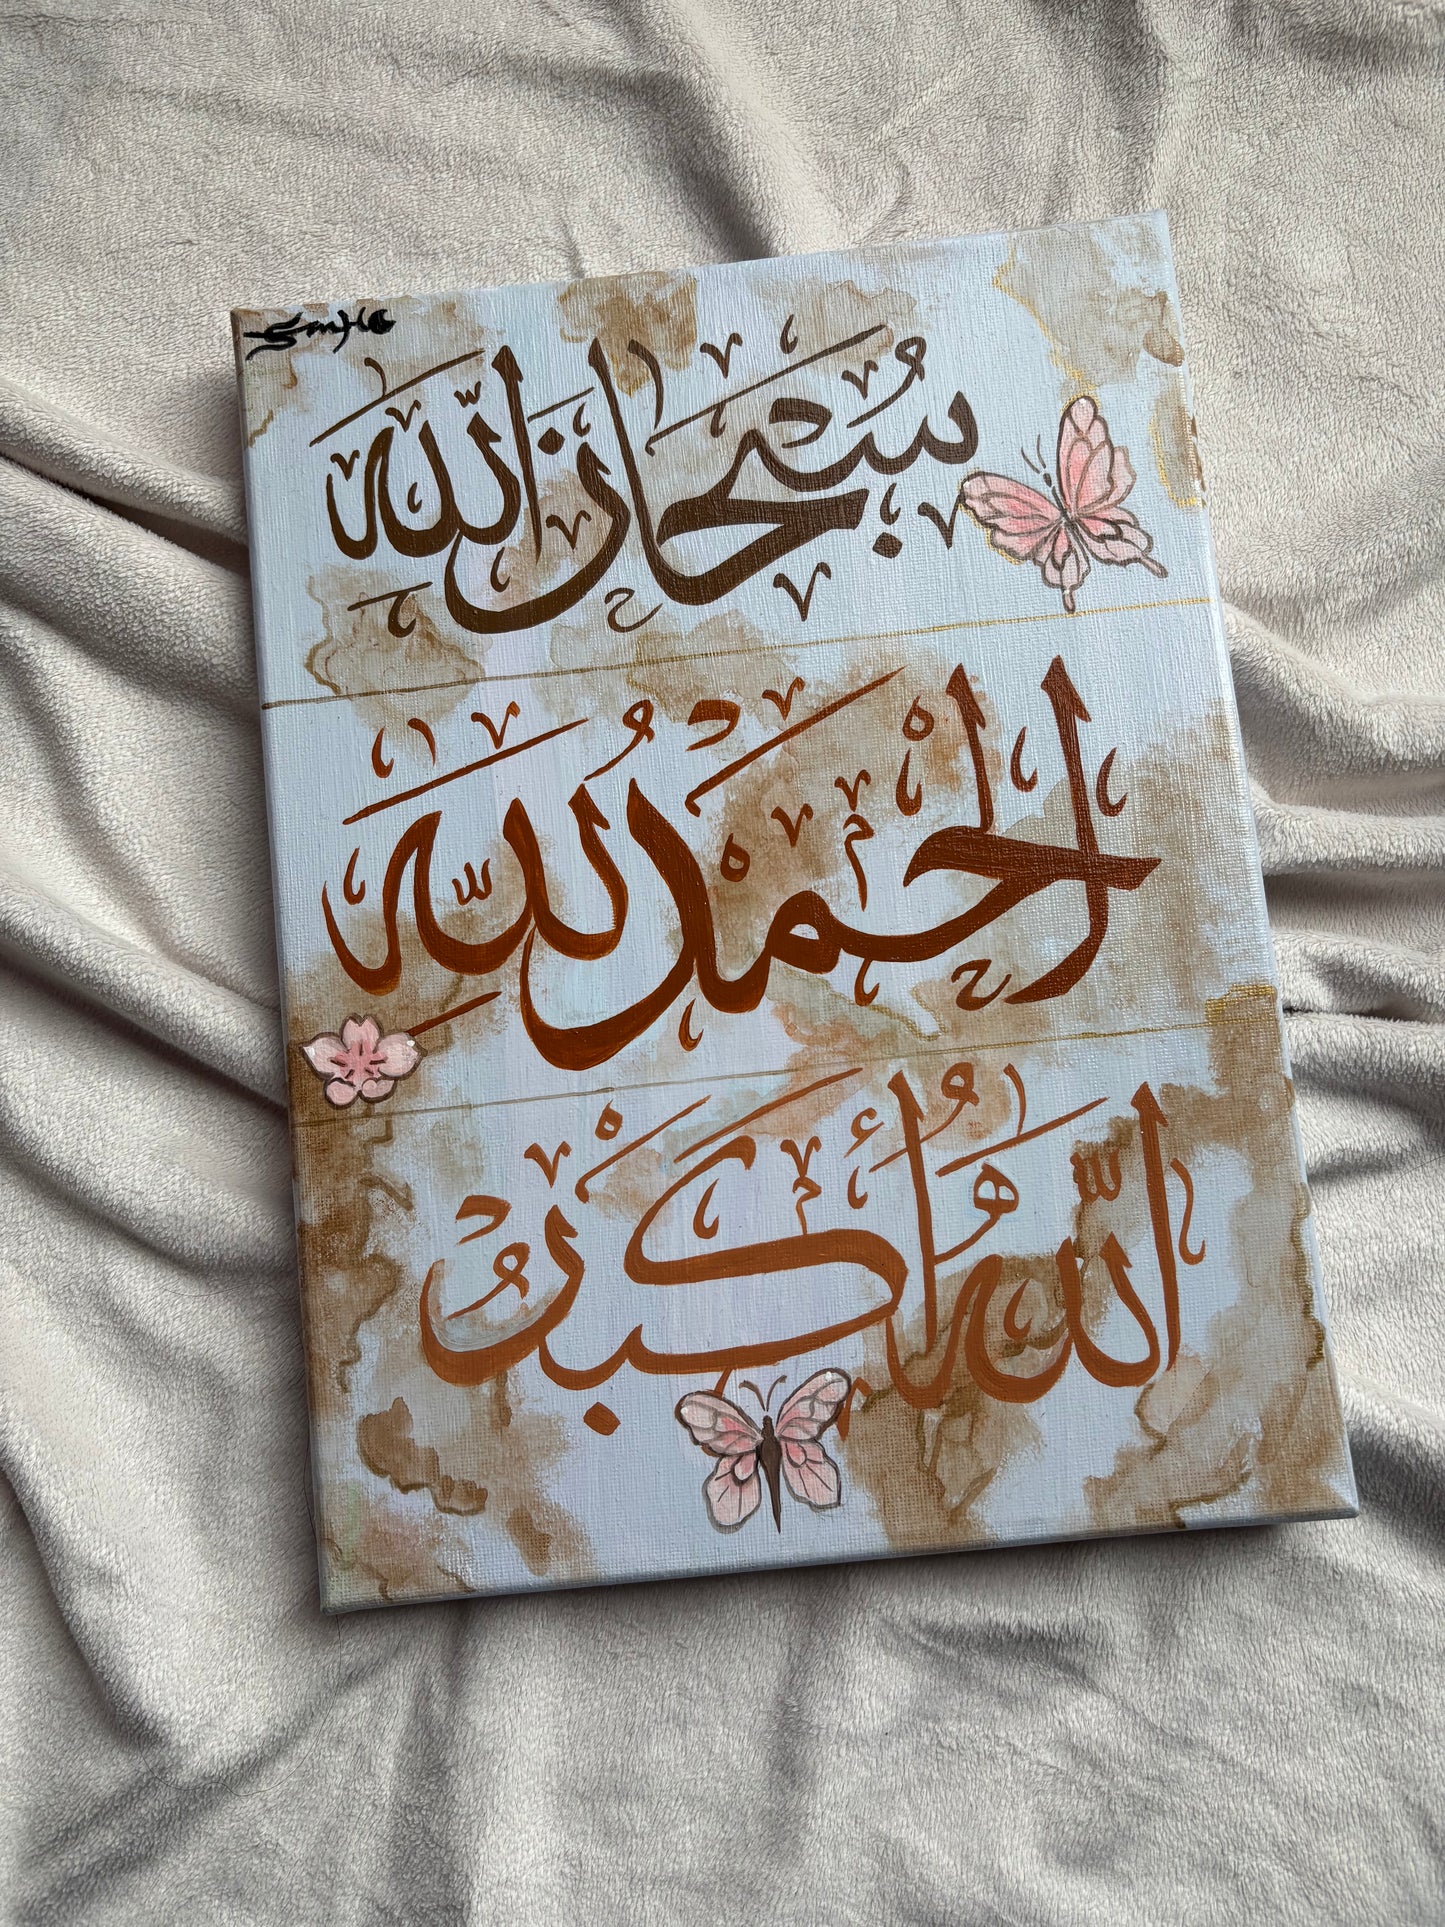 سُبْحَانَ اللّٰهِ
الْحَمْدُ لِلّٰهِ
اللّٰهُ أَكْبَرُ